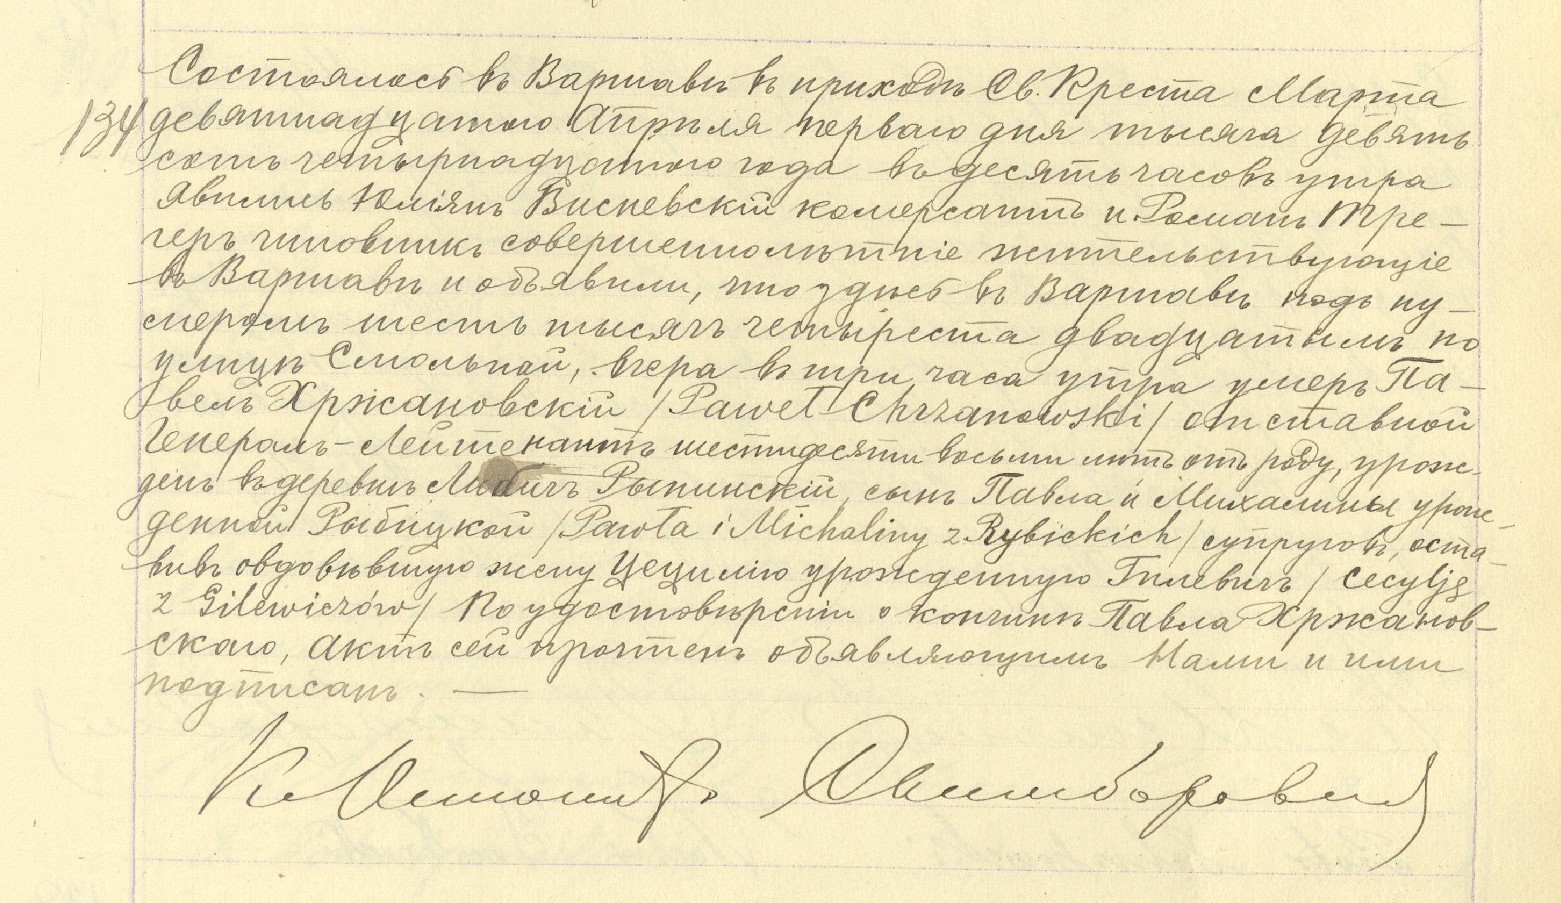 Состоялось въ Варшавѣ въ приходѣ Св. Креста Марта
134 девятнадцатого Апрѣля первого дня тысяча девять
сотъ четырнадцатого года въ десять часовъ утра
явились Юліянъ Висневскій комерсантъ и Романъ Тре-
геръ чиновникъ совершеннолѣтніе жительствующіе
въ Варшавѣ и объявили, что здѣсь въ Варшавѣ подъ ну-
меромъ шесть тысячъ четыреста двадцатымъ по
улицѣ Смольной, вчера въ три часа утра умеръ Па-
велъ Хржановскій /Paweł Chrzanowski/ отставной
Генералъ-Лейтенантъ шестидесяти восьми лѣтъ отъ роду, урож-
денъ въ деревнѣ Рыпинскій, сынъ Павла и Михалины урож-
денной Рыбицкой /Pawła i Michaliny z Rybickich/ супруговъ, оста-
вивъ овдовѣвшую жену Цецилію урожденную Гилевичъ /Cecylję
z Gilewiczów/ По удостовѣреніи о кончинѣ Павла Хржанов-
ского, актъ сей прочтенъ объявляющимъ Нами и ими
подписанъ. —